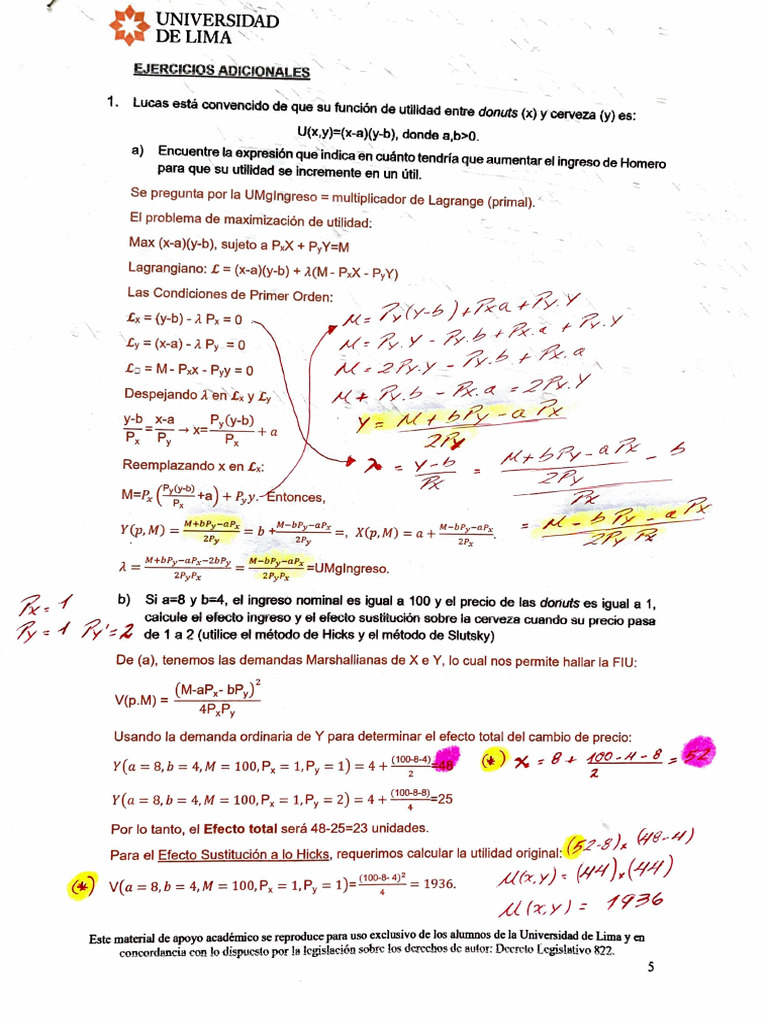 UNIVERSIDAD
DE LIMA
EJERCICIOS ADICIONALES
1. Lucas está convencido de que su función de utilidad entre donuts (x) y cerveza (y) es:
U(x,y)=(x-a)(y-b), donde a,b>0.
a) Encuentre la expresión que indica en cuánto tendría que aumentar el ingreso de Homero
para que su utilidad se incremente en un útil.
Se pregunta por la UMgIngreso = multiplicador de Lagrange (primal).
El problema de maximización de utilidad:
Max (x-a)(y-b), sujeto a PₓX + PᵧY=M
Lagrangiano: ℒ = (x-a)(y-b) + λ(M - PₓX - PᵧY)
Las Condiciones de Primer Orden:
ℒx = (y-b) - λ Pₓ = 0
ℒy = (x-a) - λ Pᵧ = 0
ℒ□ = M - Pₓx - Pᵧy = 0
Despejando λ en ℒx y ℒy
(y-b)/Pₓ = (x-a)/Pᵧ → x= Pᵧ(y-b)/Pₓ + a
Reemplazando x en ℒx:
M=Pₓ(Pᵧ(y-b)/Pₓ +a) + Pᵧy. Entonces,
Y(p,M) = (M+bPᵧ-aPₓ)/2Pᵧ = b + (M-bPᵧ-aPₓ)/2Pᵧ =, X(p,M) = a + (M-bPᵧ-aPₓ)/2Pₓ.
λ = (M+bPᵧ-aPₓ-2bPᵧ)/2PᵧPₓ = (M-bPᵧ-aPₓ)/2PᵧPₓ =UMgIngreso.
M = Py(y-b) + Px a + Py.Y
M = Py.Y - Py.b + Px.a + Py.Y
M = 2Py.Y - Py.b + Px.a
M + Py.b - Px.a = 2Py.Y
Y = (M + bPy - aPx)/2Py
λ = (y-b)/Px = ((M+bPy-aPx)/2Py - b)/Px
= (M - bPy - aPx)/2Py Px
Px = 1
Py = 1 Py' = 2
b) Si a=8 y b=4, el ingreso nominal es igual a 100 y el precio de las donuts es igual a 1,
calcule el efecto ingreso y el efecto sustitución sobre la cerveza cuando su precio pasa
de 1 a 2 (utilice el método de Hicks y el método de Slutsky)
De (a), tenemos las demandas Marshallianas de X e Y, lo cual nos permite hallar la FIU:
V(p.M) = (M-aPₓ- bPᵧ)²/4PₓPᵧ
Usando la demanda ordinaria de Y para determinar el efecto total del cambio de precio:
Y(a = 8, b = 4, M = 100, Pₓ = 1, Pᵧ = 1) = 4 + (100-8-4)/2 =48 (*) x = 8 + (100-4-8)/2 = 52
Y(a = 8, b = 4, M = 100, Pₓ = 1, Pᵧ = 2) = 4 + (100-8-8)/4 =25
Por lo tanto, el Efecto total será 48-25=23 unidades.
Para el Efecto Sustitución a lo Hicks, requerimos calcular la utilidad original: (52-8)x (48-4)
(*) V(a = 8, b = 4, M = 100, Pₓ = 1, Pᵧ = 1)= (100-8- 4)²/4 = 1936. M(x,y) = (44)x(44)
M(x,y) = 1936
Este material de apoyo académico se reproduce para uso exclusivo de los alumnos de la Universidad de Lima y en
concordancia con lo dispuesto por la legislación sobre los derechos de autor: Decreto Legislativo 822.
5